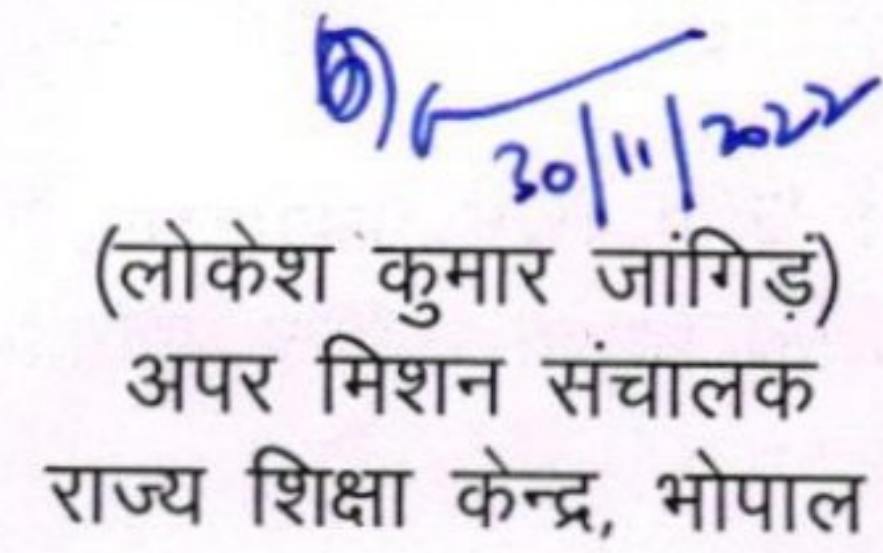 30/11/2022
(लोकेश कुमार जांगिड़ं)
अपर मिशन संचालक
राज्य शिक्षा केन्द्र, भोपाल